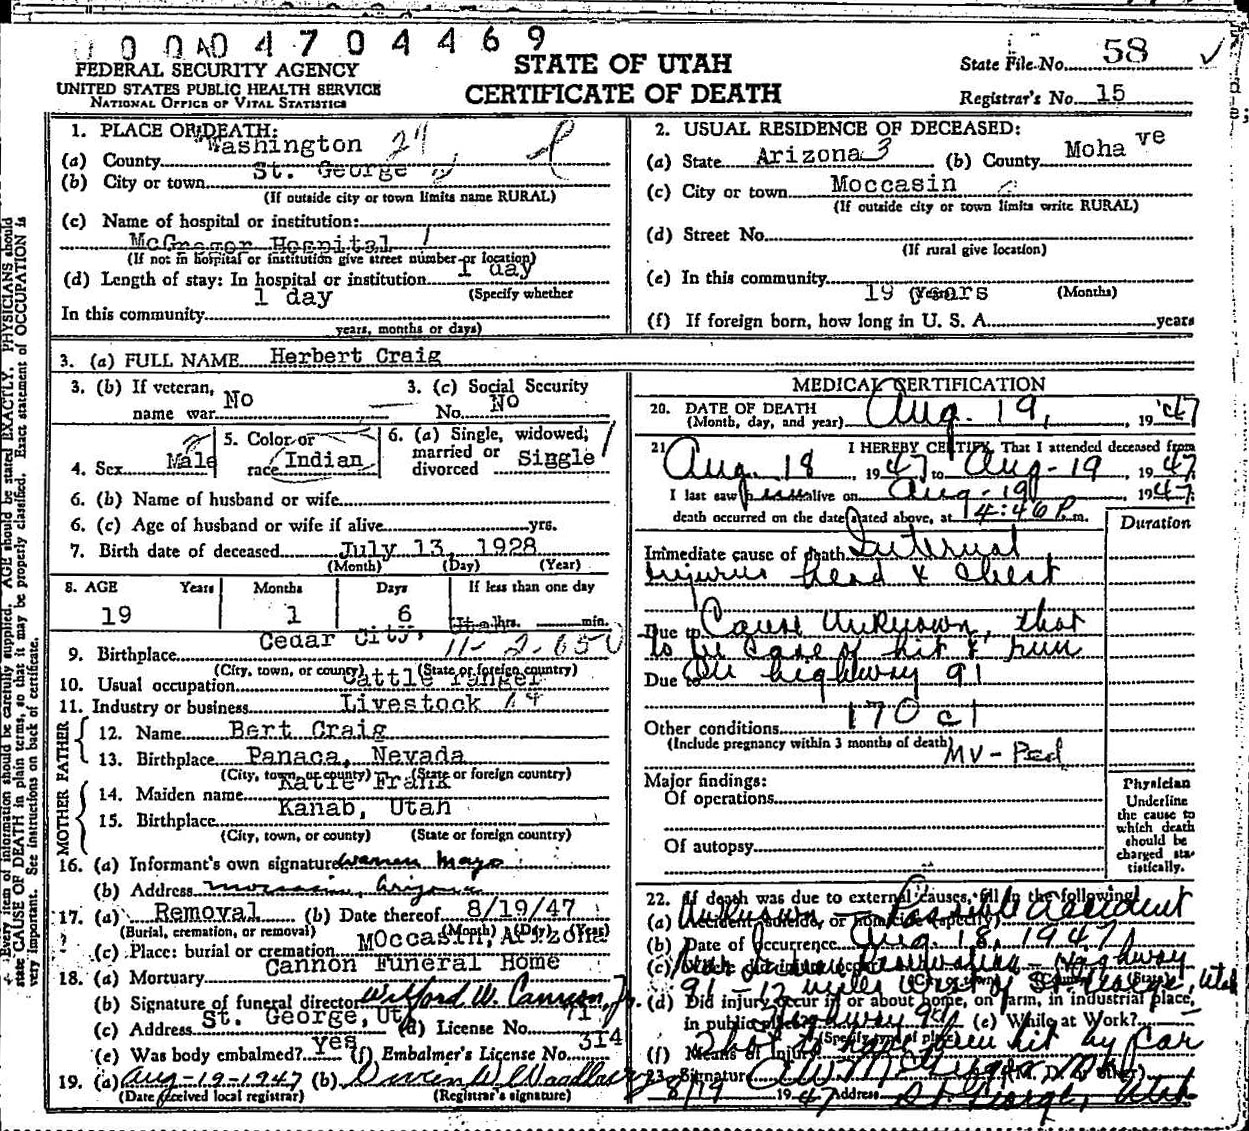 0 0 0 0 4 7 0 4 4 6 9
FEDERAL SECURITY AGENCY
UNITED STATES PUBLIC HEALTH SERVICE
NATIONAL OFFICE OF VITAL STATISTICS
STATE OF UTAH
CERTIFICATE OF DEATH
State File No. 58 ✓
Registrar's No. 15
Every item of information should be carefully supplied. AGE should be stated EXACTLY. PHYSICIANS should
state CAUSE OF DEATH in plain terms, so that it may be properly classified. Exact statement of OCCUPATION is
very important. See instructions on back of certificate.
1. PLACE OF DEATH:
(a) County Washington 27
(b) City or town St. George
(If outside city or town limits name RURAL)
(c) Name of hospital or institution:
McGregor Hospital 1
(If not in hospital or institution give street number or location)
(d) Length of stay: In hospital or institution 1 day
(Specify whether
In this community 1 day
years, months or days)
2. USUAL RESIDENCE OF DECEASED:
(a) State Arizona 3 (b) County Mohave
(c) City or town Moccasin
(If outside city or town limits write RURAL)
(d) Street No.
(If rural give location)
(e) In this community 19 years
(Years) (Months)
(f) If foreign born, how long in U. S. A. years
3. (a) FULL NAME Herbert Craig
3. (b) If veteran, name war No
3. (c) Social Security No. No
4. Sex Male
5. Color or race Indian
6. (a) Single, widowed, married or divorced Single
6. (b) Name of husband or wife
6. (c) Age of husband or wife if alive yrs.
7. Birth date of deceased July 13, 1928
(Month) (Day) (Year)
8. AGE Years Months Days If less than one day
19 1 6 hrs. min.
9. Birthplace Cedar City, Utah 11-2-650
(City, town, or county) (State or foreign country)
10. Usual occupation Cattle
11. Industry or business Livestock
FATHER
12. Name Bert Craig
13. Birthplace Panaca, Nevada
(City, town, or county) (State or foreign country)
MOTHER
14. Maiden name Katie Frank
15. Birthplace Kanab, Utah
(City, town, or county) (State or foreign country)
16. (a) Informant's own signature Warren Mayo
(b) Address Moccasin, Arizona
17. (a) Removal (b) Date thereof 8/19/47
(Burial, cremation, or removal) (Month) (Day) (Year)
(c) Place: burial or cremation MOccasin, Arizona
18. (a) Mortuary Cannon Funeral Home
(b) Signature of funeral director Wilford W. Cannon, Jr.
(c) Address St. George, Ut (d) License No. 71
(e) Was body embalmed? Yes (f) Embalmer's License No. 314
19. (a) Aug-19-1947 (b) Owen W. Woodbury
(Date received local registrar) (Registrar's signature)
MEDICAL CERTIFICATION
20. DATE OF DEATH Aug. 19, 1947
(Month, day, and year)
21. I HEREBY CERTIFY, That I attended deceased from
Aug. 18 1947 to Aug-19 1947
I last saw him alive on Aug-19 1947
death occurred on the date stated above, at 4:46 P. m.
Duration
Immediate cause of death Internal
injuries head & chest
Due to Cause Unknown, that
to be case of hit & run
Due to on highway 91
Other conditions 170 c1
(Include pregnancy within 3 months of death)
MV - Ped
Major findings:
Of operations
Of autopsy
Physician
Underline
the cause to
which death
should be
charged sta-
tistically.
22. If death was due to external causes, fill in the following:
(a) Accident, suicide, or homicide (specify) Unknown - Possible Accident
(b) Date of occurrence Aug. 18, 1947
(c) Where did injury occur? Reservation - Highway
91 - 12 miles west of St. George, Utah
(d) Did injury occur in or about home, on farm, in industrial place,
in public place? Highway 91 (e) While at Work?
(Specify type of place)
(f) Means of Injury been hit by car
23. Signature A.W. McGregor M.D. (M. D. or other)
8/19 1947 Address St. George, Utah